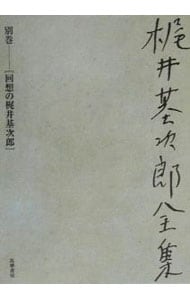 梶井基次郎全集
別巻──［回想の梶井基次郎］
筑摩書房